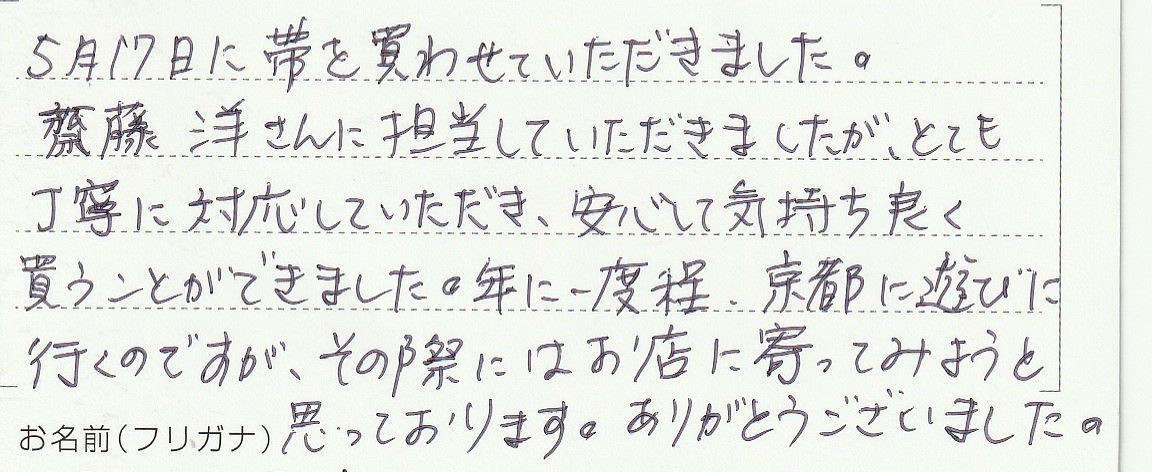 5月17日に帯を買わせていただきました。
齋藤 洋さんに担当していただきましたが、とても
丁寧に対応していただき、安心して気持ち良く
買うことができました。年に一度程、京都に遊びに
行くのですが、その際にはお店に寄ってみようと
お名前(フリガナ) 思っております。ありがとうございました。